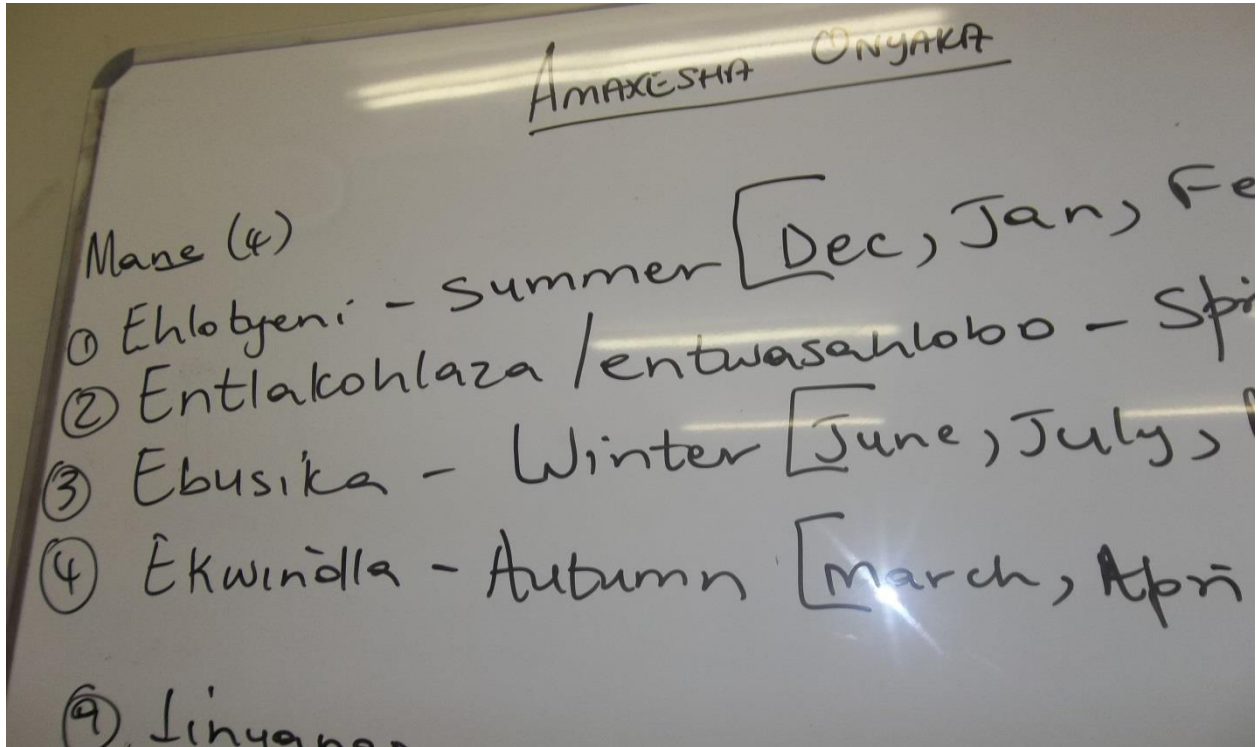 AMAXESHA ONYAKA
Mane (4)
① Ehlotyeni - Summer [Dec, Jan, Fe
② Entlakohlaza / entwasahlobo - Spri
③ Ebusika - Winter [June, July,
④ Ekwindla - Autumn [March, Apri